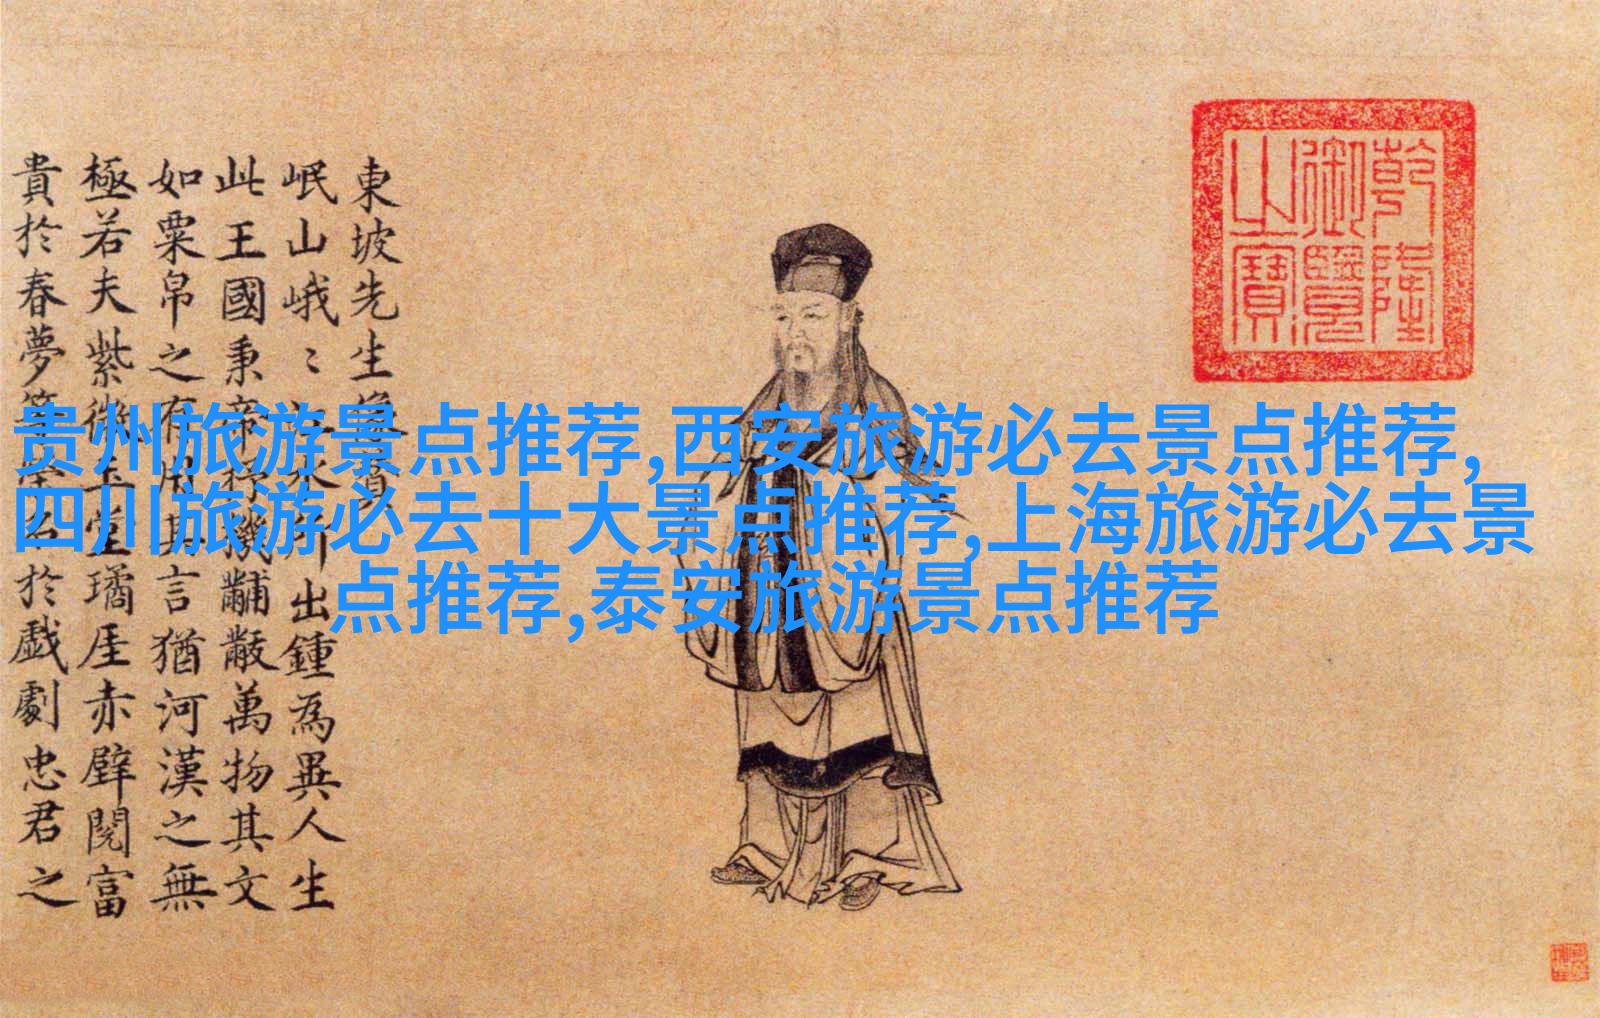 東坡先生像
岷山峨〻江水所出鍾為異人生
此王國秉帝杼機黼黻萬物其文
如粟帛之有用其言猶河漢之無
極若夫紫微玉堂璚厓赤壁閱富
貴於春夢等榮名於戯劇忠君之
乾隆
御覽
之寶
贵州旅游景点推荐,西安旅游必去景点推荐,
四川旅游必去十大景点推荐,上海旅游必去景
点推荐,泰安旅游景点推荐